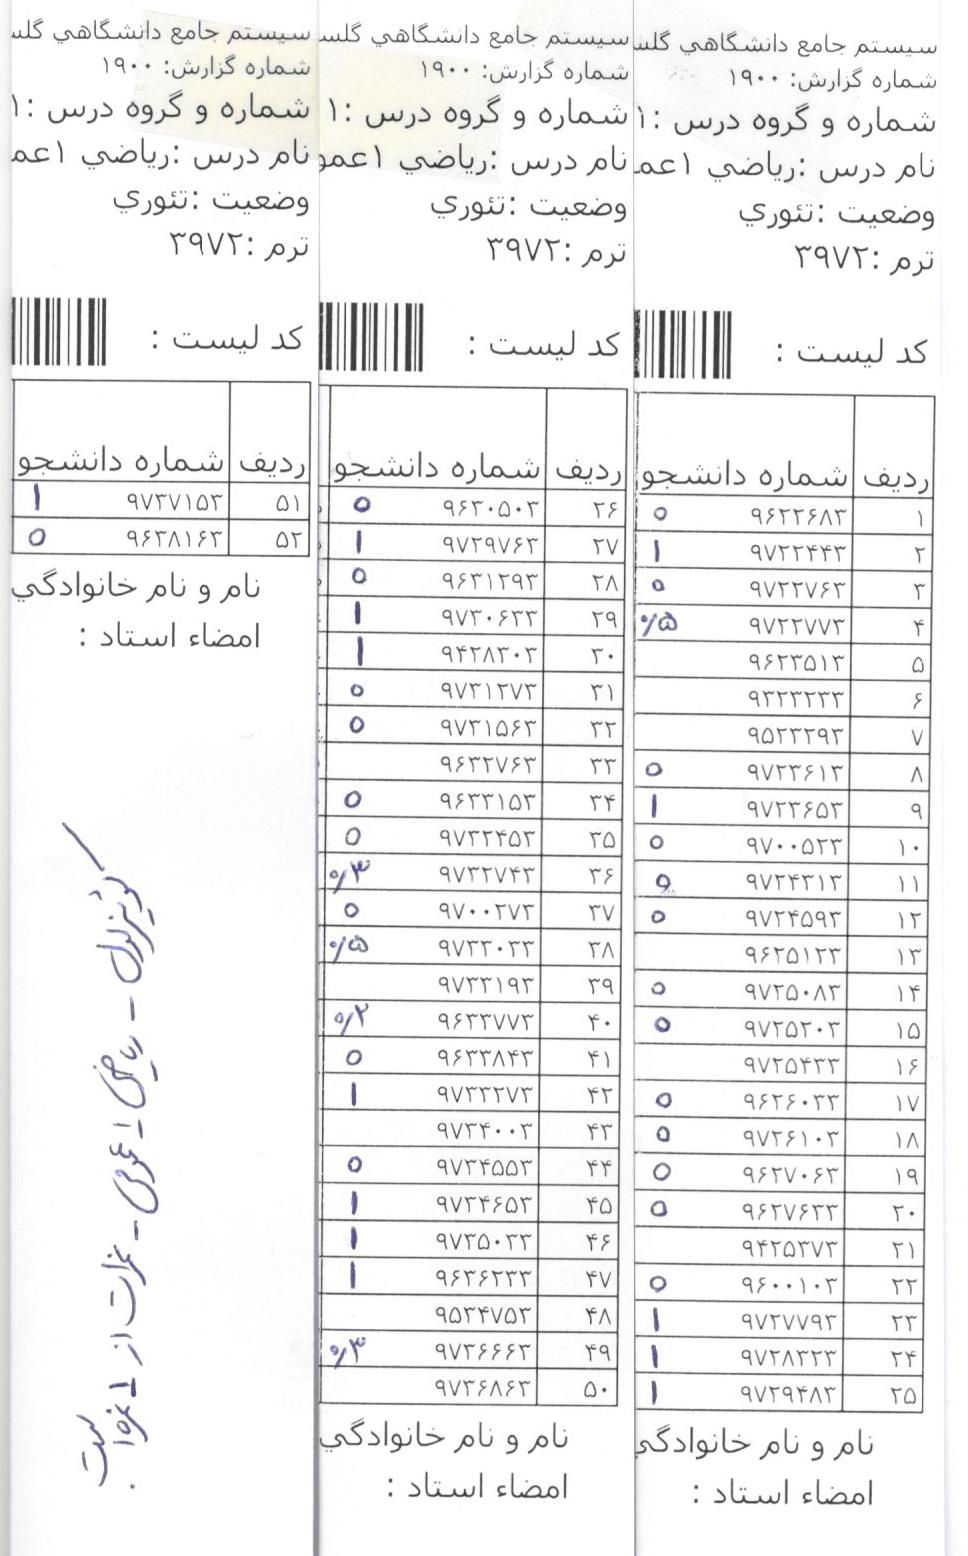 سيستم جامع دانشگاهي گلس
شماره گزارش: ۱۹۰۰
شماره و گروه درس :۱
نام درس :رياضي ۱عم
وضعيت :تئوري
ترم :۳۹۷۲
کد ليست :
رديف شماره دانشجو
۱ ۹۶۲۲۶۸۳ ۰
۲ ۹۷۲۲۴۴۳ ۱
۳ ۹۷۲۲۷۶۳ ۰
۴ ۹۷۲۲۷۷۳ ۰/۵
۵ ۹۶۲۳۵۱۳
۶ ۹۳۲۳۲۳۳
۷ ۹۵۲۳۲۹۳
۸ ۹۷۲۳۶۱۳ ۰
۹ ۹۷۲۳۶۵۳ ۱
۱۰ ۹۷۰۰۵۲۳ ۰
۱۱ ۹۷۲۴۳۱۳ ۰
۱۲ ۹۷۲۴۵۹۳ ۰
۱۳ ۹۶۲۵۱۲۳
۱۴ ۹۷۲۵۰۸۳ ۰
۱۵ ۹۷۲۵۲۰۳ ۰
۱۶ ۹۷۲۵۴۳۳
۱۷ ۹۶۲۶۰۳۳ ۰
۱۸ ۹۷۲۶۱۰۳ ۰
۱۹ ۹۶۲۷۰۶۳ ۰
۲۰ ۹۶۲۷۶۳۳ ۰
۲۱ ۹۴۲۵۳۷۳
۲۲ ۹۶۰۰۱۰۳ ۰
۲۳ ۹۷۲۷۷۹۳ ۱
۲۴ ۹۷۲۸۳۲۳ ۱
۲۵ ۹۷۲۹۴۸۳ ۱
نام و نام خانوادگي
امضاء استاد :
سيستم جامع دانشگاهي گلس
شماره گزارش: ۱۹۰۰
شماره و گروه درس :۱
نام درس :رياضي ۱عمو
وضعيت :تئوري
ترم :۳۹۷۲
کد ليست :
رديف شماره دانشجو
۲۶ ۹۶۳۰۵۰۳ ۰
۲۷ ۹۷۲۹۷۶۳ ۱
۲۸ ۹۶۳۱۲۹۳ ۰
۲۹ ۹۷۳۰۶۳۳ ۱
۳۰ ۹۴۲۸۳۰۳ ۱
۳۱ ۹۷۳۱۲۷۳ ۰
۳۲ ۹۷۳۱۵۶۳ ۰
۳۳ ۹۶۳۲۷۶۳
۳۴ ۹۶۳۳۱۵۳ ۰
۳۵ ۹۷۳۲۴۵۳ ۰
۳۶ ۹۷۳۲۷۴۳ ۰/۳
۳۷ ۹۷۰۰۲۷۳ ۰
۳۸ ۹۷۳۳۰۳۳ ۰/۵
۳۹ ۹۷۳۳۱۹۳
۴۰ ۹۶۳۳۷۷۳ ۰/۲
۴۱ ۹۶۳۳۸۴۳ ۰
۴۲ ۹۷۳۳۲۷۳ ۱
۴۳ ۹۷۳۴۰۰۳
۴۴ ۹۷۳۴۵۵۳ ۰
۴۵ ۹۷۳۴۶۵۳ ۱
۴۶ ۹۷۳۵۰۳۳ ۱
۴۷ ۹۶۳۶۲۳۳ ۱
۴۸ ۹۵۳۴۷۵۳
۴۹ ۹۷۳۶۶۶۳ ۰/۳
۵۰ ۹۷۳۶۸۶۳
نام و نام خانوادگي
امضاء استاد :
سيستم جامع دانشگاهي گلس
شماره گزارش: ۱۹۰۰
شماره و گروه درس :۱
نام درس :رياضي ۱عم
وضعيت :تئوري
ترم :۳۹۷۲
کد ليست :
رديف شماره دانشجو
۵۱ ۹۷۳۷۱۵۳ ۱
۵۲ ۹۶۳۸۱۶۳ ۰
نام و نام خانوادگي
امضاء استاد :
کوئیز اول - ریاضی ۱ عمومی - نمرات از ۱ نمره است .